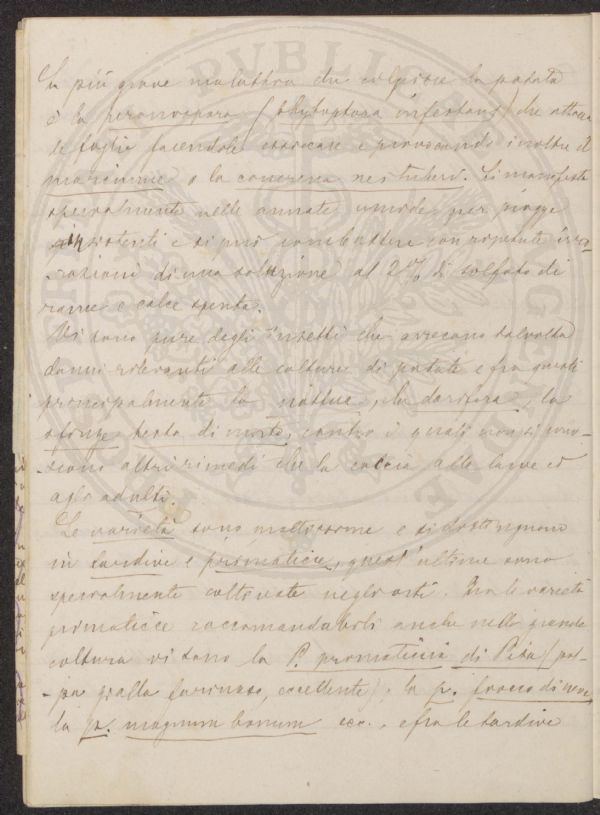 La più grave malattia che colpisce la patata
è la peronospora (Phytoptora infestans) che attacca
le foglie facendole essiccare e provocando inoltre il
marciume o la cancrena nei tuberi. Si manifesta
specialmente nelle annate umide per piogge
insistenti e si può combattere con ripetute irro-
razioni di una soluzione al 2% di solfato di
rame e calce spenta.
Vi sono pure degli insetti che arrecano talvolta
danni rilevanti alle colture di patate e fra questi
principalmente la nottua, la dorifora, la
sfinge testa di morto, contro i quali non si cono-
-scono altri rimedi che la caccia alle larve ed
agli adulti.
Le varietà sono moltissime e si distinguono
in tardive e primaticcie, quest'ultime sono
specialmente coltivate negli orti. Tra le varietà
primaticcie raccomandabili anche nella grande
coltura vi sono la P. primaticcia di Pisa (pol-
-pa gialla farinosa, eccellente), la p. fiocco di neve,
la p. magnum bonum ecc., e fra le tardive